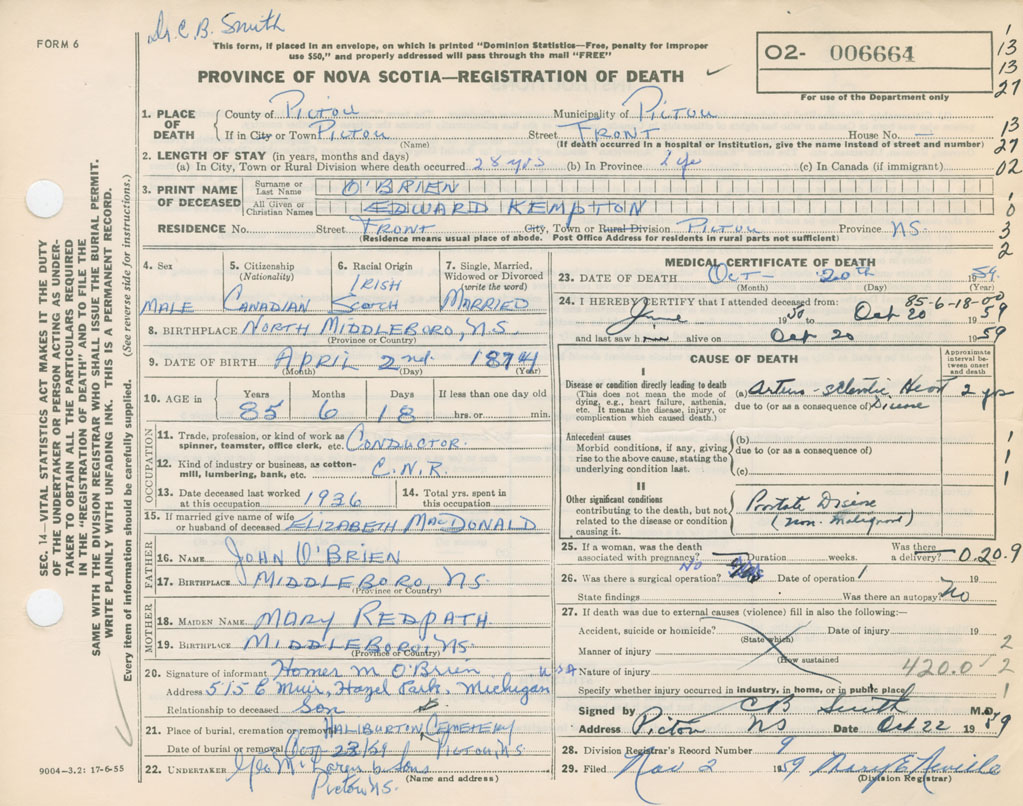 Dr. C. B. Smith
FORM 6
This form, if placed in an envelope, on which is printed "Dominion Statistics—Free, penalty for improper
use $50," and properly addressed will pass through the mail "FREE"
PROVINCE OF NOVA SCOTIA—REGISTRATION OF DEATH
O2- 006664
For use of the Department only
1
13
13
27
13
27
02
1
0
3
2
1. PLACE OF DEATH
County of Pictou Municipality of Pictou
If in City or Town Pictou Street FRONT House No. —
(Name) (If death occurred in a hospital or institution, give the name instead of street and number)
2. LENGTH OF STAY (in years, months and days)
(a) In City, Town or Rural Division where death occurred 28 yrs (b) In Province (c) In Canada (if immigrant)
3. PRINT NAME OF DECEASED
Surname or Last Name O'BRIEN
All Given or Christian Names EDWARD KEMPTTON
RESIDENCE No. Street FRONT City, Town or Rural Division Pictou Province NS.
(Residence means usual place of abode. Post Office Address for residents in rural parts not sufficient)
4. Sex
MALE
5. Citizenship
(Nationality)
CANADIAN
6. Racial Origin
IRISH
SCOTCH
7. Single, Married,
Widowed or Divorced
(write the word)
MARRIED
8. BIRTHPLACE NORTH MIDDLEBORO, N.S.
(Province or Country)
9. DATE OF BIRTH APRIL 2nd 1874
(Month) (Day) (Year)
10. AGE in
Years Months Days If less than one day old
85 6 18 hrs. or min.
OCCUPATION
11. Trade, profession, or kind of work as
spinner, teamster, office clerk, etc. CONDUCTOR.
12. Kind of industry or business, as cotton-
mill, lumbering, bank, etc. C.N.R.
13. Date deceased last worked
at this occupation 1936
14. Total yrs. spent in
this occupation
15. If married give name of wife
or husband of deceased ELIZABETH MACDONALD
FATHER
16. NAME JOHN O'BRIEN
17. BIRTHPLACE MIDDLEBORO, NS
(Province or Country)
MOTHER
18. MAIDEN NAME MARY REDPATH
19. BIRTHPLACE MIDDLEBORO, NS.
(Province or Country)
20. Signature of informant Homer M O'Brien
Address 515 E Muir, Hazel Park, Michigan USA
Relationship to deceased Son
21. Place of burial, cremation or removal HALIBURTON CEMETERY
Date of burial or removal Oct 23/59 PICTOU, NS
22. UNDERTAKER Geo McLaren & Sons
Pictou NS. (Name and address)
MEDICAL CERTIFICATE OF DEATH
23. DATE OF DEATH Oct— 20th 1959.
(Month) (Day) (Year)
85-6-18-00
24. I HEREBY CERTIFY that I attended deceased from:
June 1950 to Oct 20 1959
and last saw h alive on Oct 20 1959
CAUSE OF DEATH
Approximate
interval be-
tween onset
and death
I
Disease or condition directly leading to death
(This does not mean the mode of
dying, e.g., heart failure, asthenia,
etc. It means the disease, injury, or
complication which caused death.)
(a) Arterio-sclerotic Heart 2 yrs
due to (or as a consequence of) Disease
Antecedent causes
Morbid conditions, if any, giving
rise to the above cause, stating the
underlying condition last.
(b)
due to (or as a consequence of)
(c)
1
1
1
II
Other significant conditions
contributing to the death, but not
related to the disease or condition
causing it.
Prostate Disease
(non-malignant)
25. If a woman, was the death
associated with pregnancy? Duration weeks. Was there
a delivery? 0.20.9
26. Was there a surgical operation? NO Date of operation 19
State findings Was there an autopsy? No
27. If death was due to external causes (violence) fill in also the following:—
Accident, suicide or homicide? Date of injury 19
(State which)
Manner of injury 2
(How sustained
Nature of injury 420.0 2
Specify whether injury occurred in industry, in home, or in public place 1
Signed by CB Smith M.D.
Address Pictou NS Date Oct 22 1959
28. Division Registrar's Record Number 9
29. Filed Nov 2 1959 Mary E Neville
(Division Registrar)
9004-3.2: 17-6-55
SEC. 14—VITAL STATISTICS ACT MAKES IT THE DUTY
OF THE UNDERTAKER OR PERSON ACTING AS UNDER-
TAKER TO OBTIAN ALL THE PARTICULARS REQUIRED
IN THE "REGISTRATION OF DEATH" AND TO FILE THE
SAME WITH THE DIVISION REGISTRAR WHO SHALL ISSUE THE BURIAL PERMIT.
WRITE PLAINLY WITH UNFADING INK. THIS IS A PERMANENT RECORD.
Every item of information should be carefully supplied. (See reverse side for instructions.)